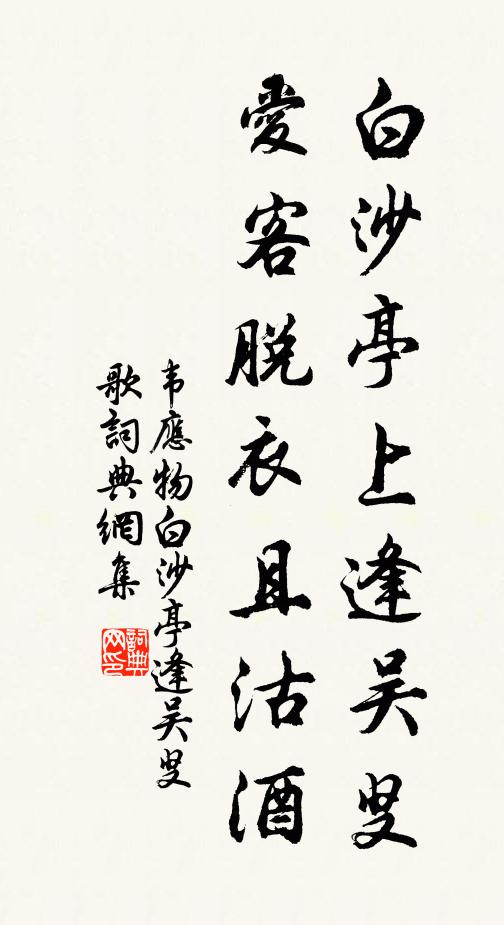 白沙亭上逢吴叟
愛客脱衣且沽酒
韦應物白沙亭逢吴叟
歌詞典網集
詞典网印